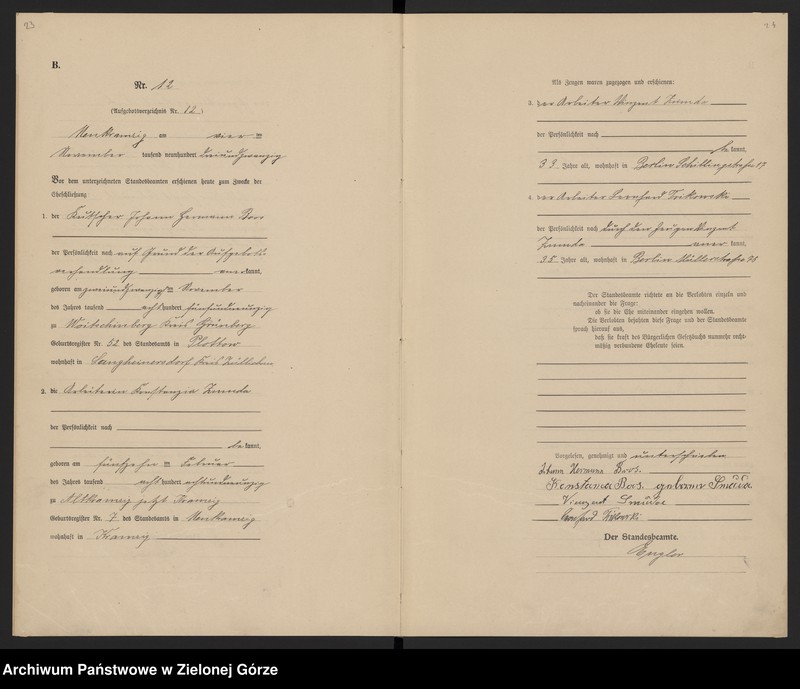 23
B.
Nr. 12
(Aufgebotsverzeichnis Nr. 12.)
Neukramzig am vier ten
November tausend neunhundert dreiundzwanzig
Vor dem unterzeichneten Standesbeamten erschienen heute zum Zwecke der
Eheschließung:
1. der Kutscher Johann Hermann
der Persönlichkeit nach auf Grund der Aufgebots
verhandlung aner kannt,
geboren am zweiundzwanzigsten November
des Jahres tausend achthundert fünfundneunzig
zu Woitscheberg Kreis Grünberg
Geburtsregister Nr. 52 des Standesamts in Plottow
wohnhaft in Langheinersdorf Kreis Züllichau
2. die Arbeiterin Konstanzia Zmuda
der Persönlichkeit nach
be kannt,
geboren am fünfzehn ten Februar
des Jahres tausend achthundert achtundneunzig
zu Altkramzig jetzt Kramzig
Geburtsregister Nr. 7 des Standesamts in Neukramzig
wohnhaft in Kramzig
Als Zeugen waren zugezogen und erschienen:
3. der Arbeiter Vinzent Zmuda
der Persönlichkeit nach
be kannt,
33 Jahre alt, wohnhaft in Berlin Schillingstraße 17
4. der Arbeiter Bernhard
der Persönlichkeit nach durch den Zeugen Vinzent
Zmuda aner kannt,
25 Jahre alt, wohnhaft in Berlin Müllerstraße 98
Der Standesbeamte richtete an die Verlobten einzeln und
nacheinander die Frage:
ob sie die Ehe miteinander eingehen wollen.
Die Verlobten bejahten diese Frage und der Standesbeamte
sprach hierauf aus,
daß sie kraft des Bürgerlichen Gesetzbuchs nunmehr recht-
mäßig verbundene Eheleute seien.
Vorgelesen, genehmigt und unterschrieben
Johann Hermann
Konstancia geborene Smuda
Vinzent Smuda
Bernhard
Der Standesbeamte.
Engler
Archiwum Państwowe w Zielonej Górze